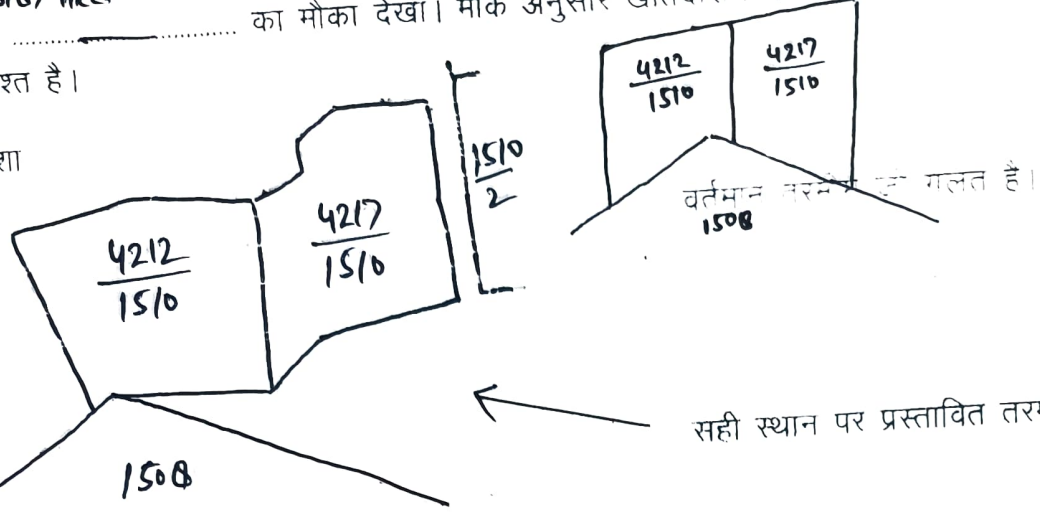 का मौका देखा। मौके अनुसार
श्त है।
4212
1510
4217
1510
शा
1510
2
वर्तमान तरमीम गलत है।
1508
4212
1510
4217
1510
सही स्थान पर प्रस्तावित तरम
1508